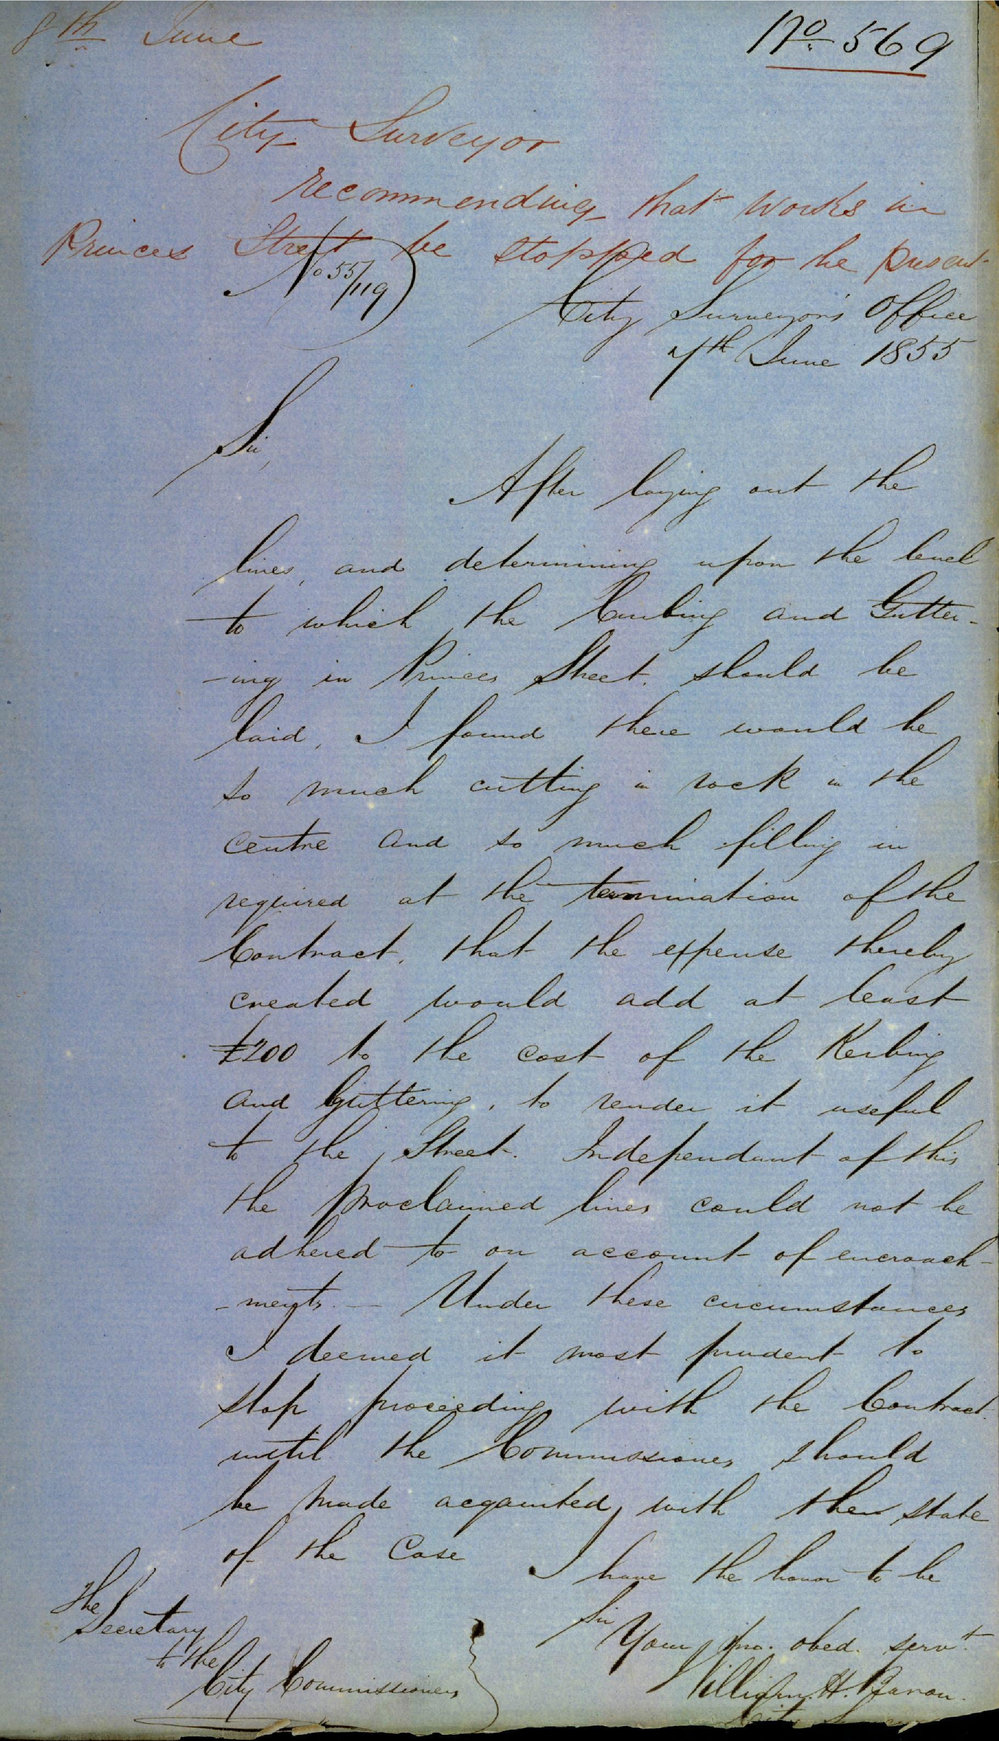 8th June
No. 569
City Surveyor
recommending that works in
Princes Street be stopped for the present
No 55/119
City Surveyor's Office
7th June 1855
Sir,
After laying out the
lines, and determining upon the level
to which the Curbing and Gutter-
-ing in Princes Street, should be
laid, I found there would be
so much cutting in rock in the
centre and so much filling in
required at the termination of the
Contract, that the expense thereby
created would add at least
£200 to the cost of the Kerbing
and Guttering, to render it useful
to the Street. Independant of this
the proclaimed lines could not be
adhered to on account of encroach-
-ments. — Under these circumstances
I deemed it most prudent to
stop proceeding with the Contract
until the Commissioners should
be made acquainted with the state
of the case
I have the honor to be
Sir
Your mo. obed. servt
William H.
City Surveyor
The
Secretary
to the
City Commissioners